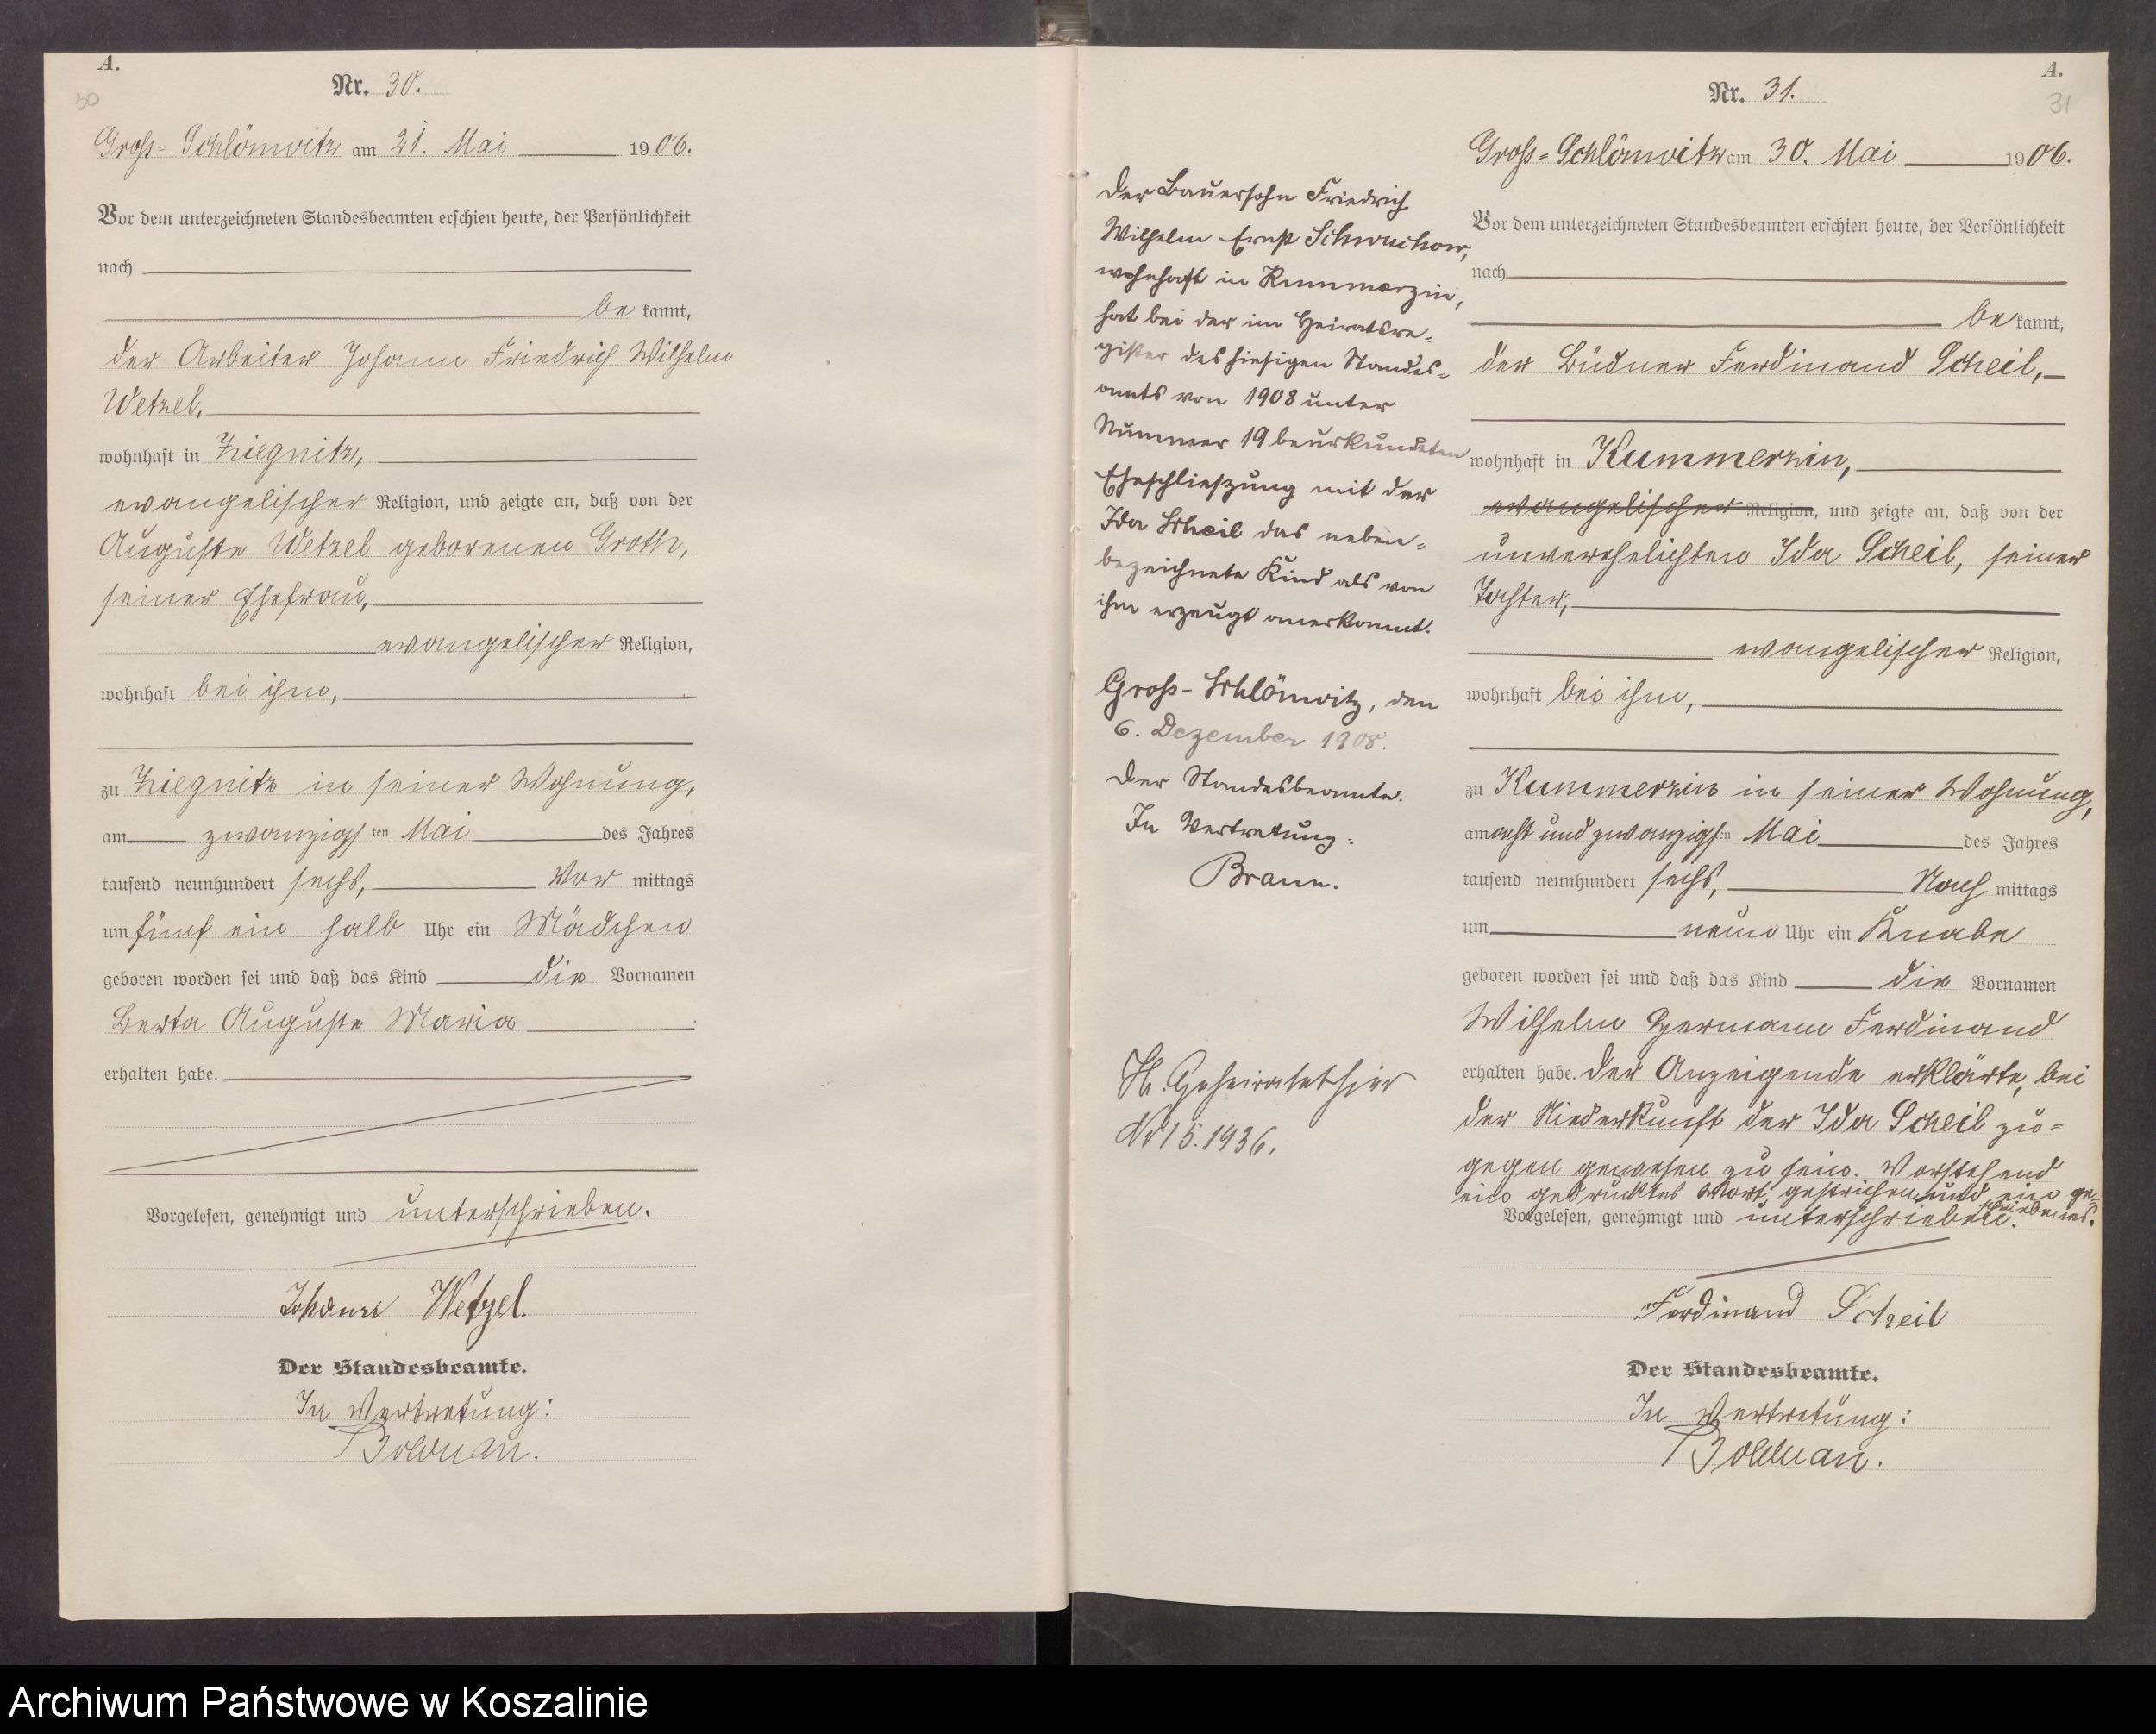 A.
30
Nr. 30.
Gross-Schlönwitz am 21. Mai 1906.
Vor dem unterzeichneten Standesbeamten erschien heute, der Persönlichkeit
nach
be kannt,
der Arbeiter Johann Friedrich Wilhelm
Wetzel,
wohnhaft in Ziegnitz,
evangelischer Religion, und zeigte an, daß von der
Auguste Wetzel geborenen Groth,
seiner Ehefrau,
evangelischer Religion,
wohnhaft bei ihm,
zu Ziegnitz in seiner Wohnung,
am zwanzigsten Mai des Jahres
tausend neunhundert sechs, Vor mittags
um fünf ein halb Uhr ein Mädchen
geboren worden sei und daß das Kind die Vornamen
Berta Auguste Maria
erhalten habe.
Vorgelesen, genehmigt und unterschrieben.
Johann Wetzel.
Der Standesbeamte.
In Vertretung:
Bolduan.
Der Bauersohn Friedrich
Wilhelm Ernst Schwuchow,
wohnhaft in Kummerzin,
hat bei der im Heiratsre-
gister des hiesigen Standes-
amts von 1908 unter
Nummer 19 beurkundeten
Eheschlieszung mit der
Ida Scheil das neben-
bezeichnete Kind als von
ihm erzeugt anerkannt.
Gross-Schlönwitz, den
6. Dezember 1908.
Der Standesbeamte.
In Vertretung:
Braun.
Geheiratet hier
No 15.1936.
A.
31
Nr. 31.
Gross-Schlönwitz am 30. Mai 1906.
Vor dem unterzeichneten Standesbeamten erschien heute, der Persönlichkeit
nach
be kannt,
der Büdner Ferdinand Scheil,
wohnhaft in Kummerzin,
evangelischer Religion, und zeigte an, daß von der
unverehelichten Ida Scheil, seiner
Tochter,
evangelischer Religion,
wohnhaft bei ihm,
zu Kummerzin in seiner Wohnung,
am acht und zwanzigsten Mai des Jahres
tausend neunhundert sechs, Nach mittags
um neun Uhr ein Knabe
geboren worden sei und daß das Kind die Vornamen
Wilhelm Hermann Ferdinand
erhalten habe. Der Anzeigende erklärte, bei
der Niederkunft der Ida Scheil zu-
gegen gewesen zu sein. Vorstehend
ein gedrucktes Wort gestrichen und ein ge-
schriebenes.
Vorgelesen, genehmigt und unterschrieben.
Ferdinand Scheil
Der Standesbeamte.
In Vertretung:
Bolduan.
Archiwum Państwowe w Koszalinie